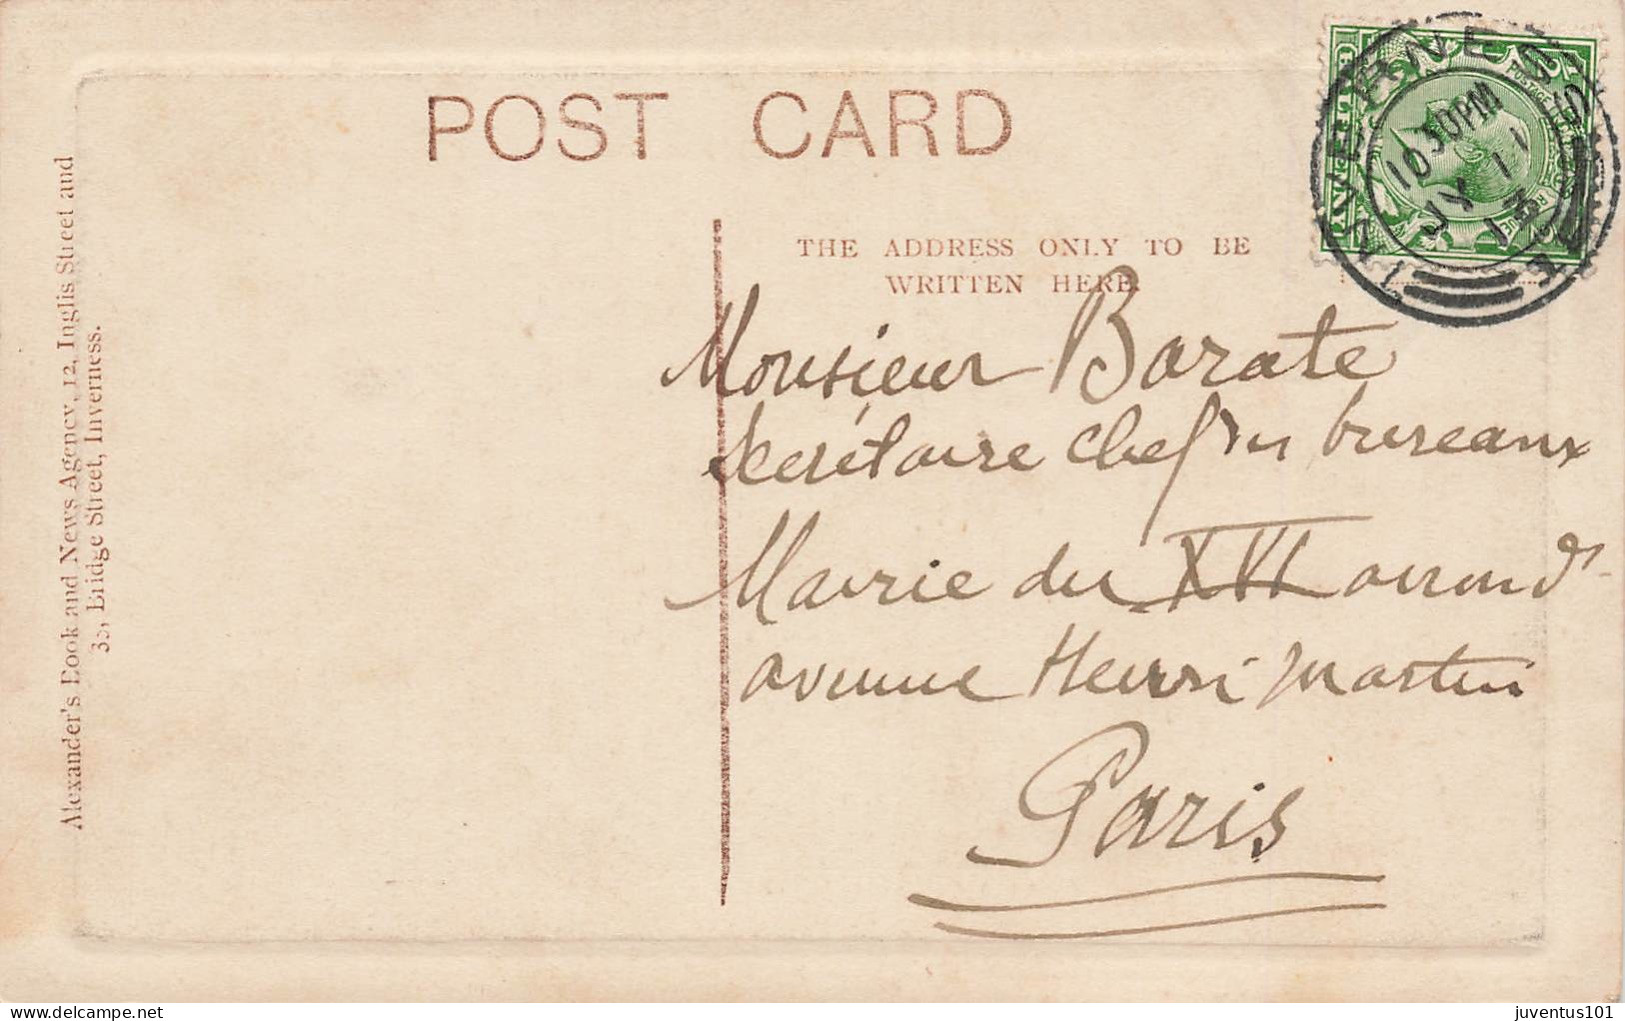 POST CARD
THE ADDRESS ONLY TO BE
WRITTEN HERE.
INVERNESS
10 30PM
JY 11
13
Monsieur Barate
Secrétaire Chef des bureaux
Mairie du XVI arrond^t
avenue Henri Martin
Paris
Alexander's Book and News Agency, 12, Inglis Street and
35, Bridge Street, Inverness.
delcampe.net
juventus101